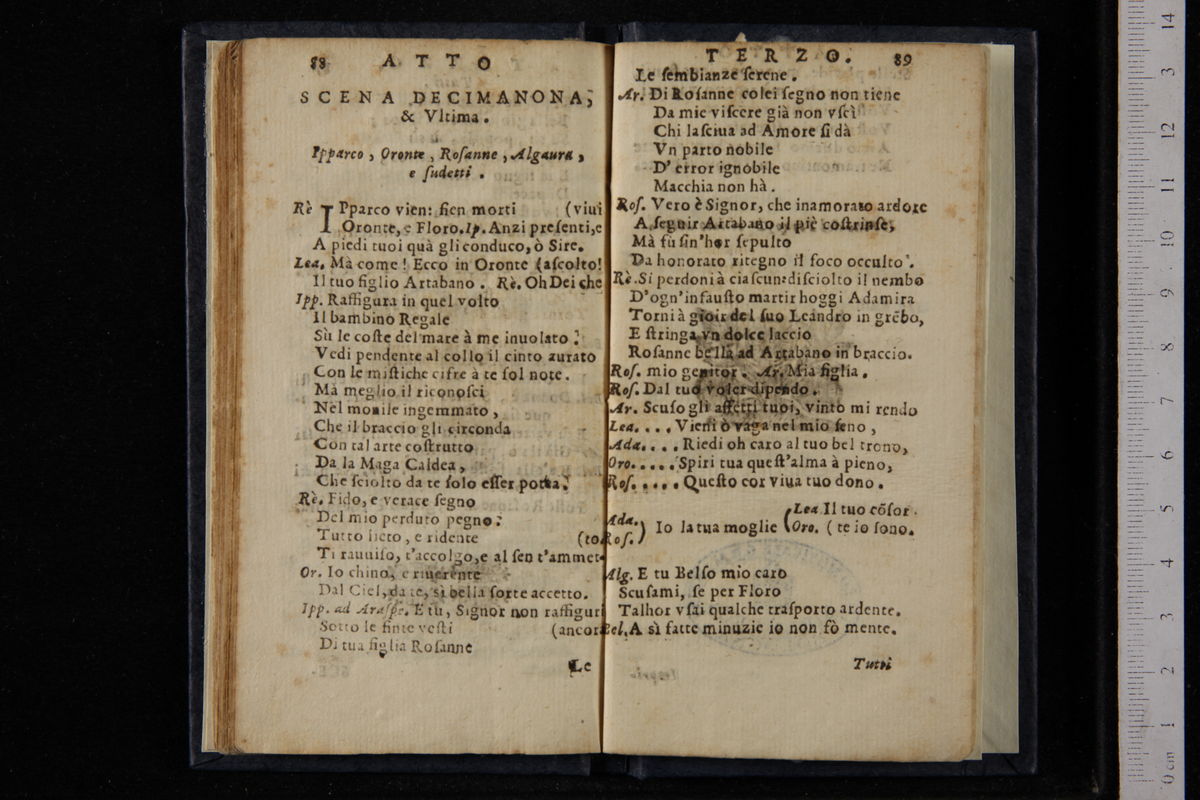 88 ATTO
SCENA DECIMANONA,
& Vltima.
Ipparco, Oronte, Roſanne, Algaura,
e ſudetti.
Rè IPparco vien: ſien morti (viui
Oronte, e Floro. Ip. Anzi preſenti, e
A piedi tuoi quà gli conduco, ò Sire.
Lea. Mà come! Ecco in Oronte (aſcolto!
Il tuo figlio Artabano. Rè. Oh Dei che
Ipp. Raffigura in quel volto
Il bambino Regale
Sù le coſte del mare à me inuolato:
Vedi pendente al collo il cinto aurato
Con le miſtiche cifre à te ſol note.
Mà meglio il riconoſci
Nel monile ingemmato,
Che il braccio gli circonda
Con tal arte coſtrutto
Da la Maga Caldea,
Che ſciolto da te ſolo eſſer potea.
Rè. Fido, e verace ſegno
Del mio perduto pegno:
Tutto lieto, e ridente (to
Ti rauuiſo, t'accolgo, e al ſen t'ammet-
Or. Io chino, e riuerente
Dal Ciel, da te, sì bella ſorte accetto.
Ipp. ad Araſpe. E tu, Signor non raffiguri
Sotto le finte veſti (ancora
Di tua figlia Roſanne
Le
TERZO. 89
Le ſembianze ſerene.
Ar. Di Roſanne colei ſegno non tiene
Da mie viſcere già non vſcì
Chi laſciua ad Amore ſi dà
Vn parto nobile
D' error ignobile
Macchia non hà.
Roſ. Vero è Signor, che inamorato ardore
A ſeguir Artabano il piè coſtrinſe,
Mà fù ſin'hor ſepulto
Da honorato ritegno il foco occulto.
Rè. Si perdoni à ciaſcun: diſciolto il nembo
D'ogn'infauſto martir hoggi Adamira
Torni à gioir del ſuo Leandro in grẽbo,
E ſtringa vn dolce laccio
Roſanne bella ad Artabano in braccio.
Roſ. mio genitor. Ar. Mia figlia.
Roſ. Dal tuo voler dipendo.
Ar. Scuſo gli affetti tuoi, vinto mi rendo
Lea.... Vieni ò vaga nel mio ſeno,
Ada.... Riedi oh caro al tuo bel trono,
Oro..... Spiri tua queſt'alma à pieno,
Roſ..... Queſto cor viua tuo dono.
Ada. Lea Il tuo cõſor-
Io la tua moglie
Roſ.) Oro. (te io ſono.
Alg. E tu Belſo mio caro
Scuſami, ſe per Floro
Talhor vſai qualche traſporto ardente.
Bel. A sì fatte minuzie io non fò mente.
Tutti